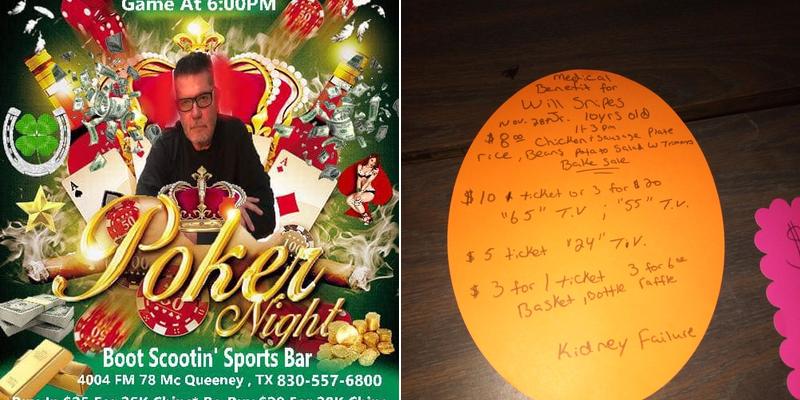 Game At 6:00PM
Poker
Night
Boot Scootin' Sports Bar
4004 FM 78 Mc Queeney , TX 830-557-6800
Medical
Benefit for
Will Snipes
Jr. 10yrs old
Nov. 28
11-3pm
$8.00 Chicken + Sausage Plate
rice, Beans Potato Salad w Trimmins
Bake Sale
$10 ticket or 3 for $20
"65" T.V ; "55" T.V.
$5 ticket "24" T.V.
$3 for 1 ticket 3 for 6.00
Basket, Bottle raffle
Kidney Failure